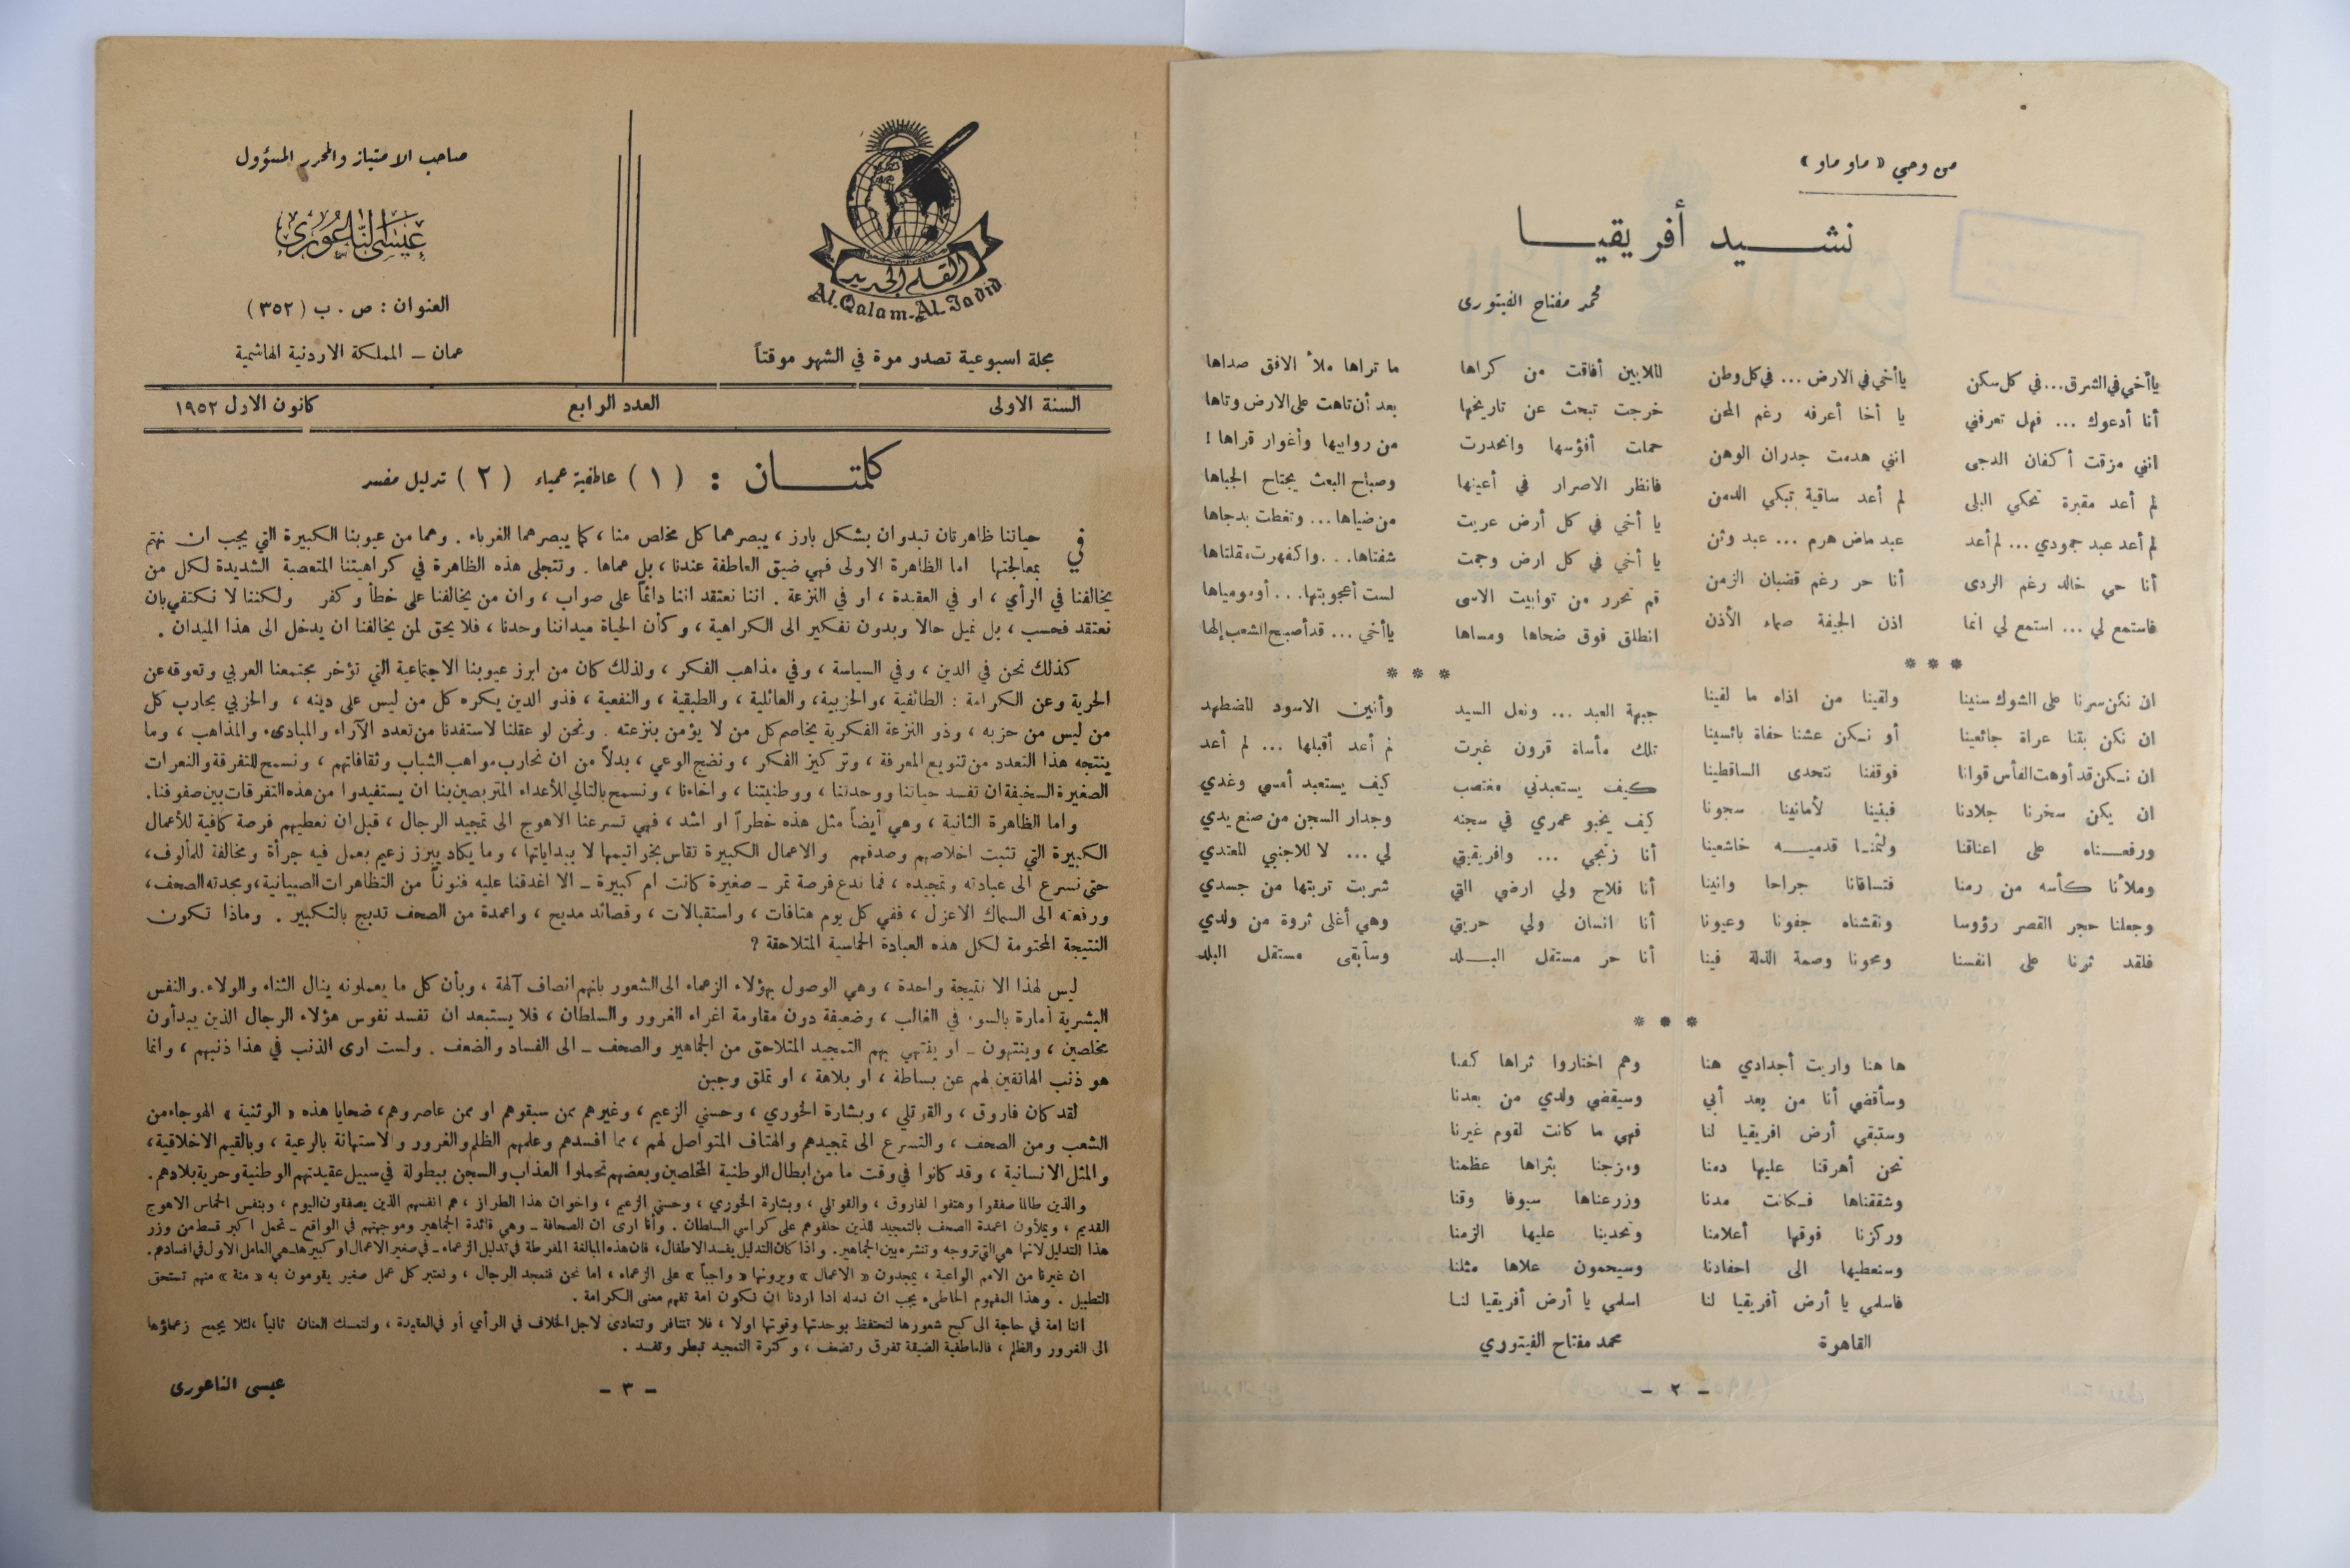 من وحي « ماو ماو »
نشيد أفريقيا
محمد مفتاح الفيتوري
يا أخي في الشرق ... في كل سكن يا أخي في الارض ... في كل وطن
أنا أدعوك ... فهل تعرفني يا أخا أعرفه رغم المحن
انني مزقت أكفان الدجى انني هدمت جدران الوهن
لم أعد مقبرة تحكي البلى لم أعد ساقية تبكي الدمن
لم أعد عبد جمودي ... لم أعد عبد ماض هرم ... عبد وثن
أنا حي خالد رغم الردى أنا حر رغم قضبان الزمن
فاستمع لي ... استمع لي انما اذن الجيفة صماء الأذن
الملايين أفاقت من كراها ما تراها ملأ الافق صداها
خرجت تبحث عن تاريخها بعد أن تاهت على الارض وتاها
حملت أفؤسها وانحدرت من روابيها وأغوار قراها !
فانظر الاصرار في أعينها وصباح البعث يجتاح الجباها
يا أخي في كل أرض عريت من ضياها ... وتغطت بدجاها
يا أخي في كل ارض وجمت شفتاها ... واكفهرت مقلتاها
قم تحرر من توابيت الاسى لست أعجوبتها ... أو مومياها
انطلق فوق ضحاها ومساها يا أخي ... قد أصبح الشعب إلها
* * *
ان نكن سرنا على الشوك سنينا ولقينا من اذاه ما لقينا
ان نكن بتنا عراة جائعينا أو نكن عشنا حفاة بائسينا
ان نكن قد أوهت الفأس قوانا فوقفنا نتحدى الساقطينا
ان يكن سخرنا جلادنا فبنينا لأمانينا سجونا
ورفعناه على اعناقنا ولثمنا قدميه خاشعينا
وملأنا كأسه من رمنا فتساقانا جراحا وانينا
وجعلنا حجر القصر رؤوسا ونقشناه جفونا وعيونا
فلقد ثرنا على انفسنا ومحونا وصمة الذلة فينا
* * *
جبهة العبد ... ونعل السيد وأنين الاسود المضطهد
تلك مأساة قرون غبرت لم أعد أقبلها ... لم أعد
كيف يستعبدني مغتصب كيف يستعبد أمسي وغدي
كيف يخبو عمري في سجنه وجدار السجن من صنع يدي
أنا زنجي ... وافريقيتي لي ... لا للاجنبي المعتدي
أنا فلاح ولي ارضي التي شربت تربتها من جسدي
أنا انسان ولي حريتي وهي أغلى ثروة من ولدي
أنا حر مستقل البلد وسأبقى مستقل البلد
* * *
ها هنا واريت أجدادي هنا وهم اختاروا ثراها كفنا
وسأقضي أنا من بعد أبي وسيقضي ولدي من بعدنا
وستبقي أرض افريقيا لنا فهي ما كانت لقوم غيرنا
نحن أهرقنا عليها دمنا ومزجنا بثراها عظمنا
وشققناها فكانت مدنا وزرعناها سيوفا وقنا
وركزنا فوقها أعلامنا وتحدينا عليها الزمنا
وسنعطيها الى احفادنا وسيحمون علاها مثلنا
فاسلمي يا أرض أفريقيا لنا اسلمي يا أرض أفريقيا لنا
القاهرة محمد مفتاح الفيتوري
- ٢ -
القلم الجديد
Al-Qalam-Al-Jadid
مجلة اسبوعية تصدر مرة في الشهر موقتاً
صاحب الامتياز والمحرر المسؤول
عيسى الناعوري
العنوان : ص . ب ( ٣٥٢ )
عمان - المملكة الاردنية الهاشمية
السنة الاولى العدد الرابع كانون الاول ١٩٥٢
كلمتان : ( ١ ) عاطفية عمياء ( ٢ ) تدليل مفسد
في حياتنا ظاهرتان تبدوان بشكل بارز ، يبصرهما كل مخلص منا ، كما يبصرهما الغرباء . وهما من عيوبنا الكبيرة التي يجب ان نهتم
بمعالجتها اما الظاهرة الاولى فهي ضيق العاطفة عندنا ، بل عماها . وتتجلى هذه الظاهرة في كراهيتنا المتعصبة الشديدة لكل من
يخالفنا في الرأي ، او في العقيدة ، او في النزعة . اننا نعتقد اننا دائماً على صواب ، وان من يخالفنا على خطأ وكفر ولكننا لا نكتفي بان
نعتقد فحسب ، بل نميل حالا وبدون تفكير الى الكراهية ، وكأن الحياة ميداننا وحدنا ، فلا يحق لمن يخالفنا ان يدخل الى هذا الميدان .
كذلك نحن في الدين ، وفي السياسة ، وفي مذاهب الفكر ، ولذلك كان من ابرز عيوبنا الاجتماعية التي تؤخر مجتمعنا العربي وتعوقه عن
الحرية وعن الكرامة : الطائفية ، والحزبية ، والعائلية ، والطبقية ، والنفعية ، فذو الدين يكره كل من ليس على دينه ، والحزبي يحارب كل
من ليس من حزبه ، وذو النزعة الفكرية يخاصم كل من لا يؤمن بنزعته . ونحن لو عقلنا لاستفدنا من تعدد الآراء والمبادىء والمذاهب ، وما
ينتجه هذا التعدد من تنويع المعرفة ، وتركيز الفكر ، ونضج الوعي ، بدلاً من ان نحارب مواهب الشباب وثقافاتهم ، ونسمح للتفرقة والنعرات
الصغيرة السخيفة ان تفسد حياتنا ووحدتنا ، ووطنيتنا ، واخاءنا ، ونسمح بالتالي للأعداء المتربصين بنا ان يستفيدوا من هذه التفرقات بين صفوفنا.
واما الظاهرة الثانية ، وهي أيضاً مثل هذه خطراً او اشد ، فهي تسرعنا الاهوج الى تمجيد الرجال ، قبل ان نعطيهم فرصة كافية للأعمال
الكبيرة التي تثبت اخلاصهم وصدقهم والاعمال الكبيرة تقاس بخواتيمها لا ببداياتها ، وما يكاد يبرز زعيم بعمل فيه جرأة ومخالفة للمألوف،
حتى نسرع الى عبادته وتمجيده ، فما ندع فرصة تمر - صغيرة كانت ام كبيرة - الا اغدقنا عليه فنوناً من التظاهرات الصبيانية، ومجدته الصحف،
ورفعته الى السماك الاعزل ، ففي كل يوم هتافات ، واستقبالات ، وقصائد مديح ، واعمدة من الصحف تدبج بالتكبير . وماذا تكون
النتيجة المحتومة لكل هذه العبادة الحماسية المتلاحقة ؟
ليس لهذا الا نتيجة واحدة ، وهي الوصول بهؤلاء الزعماء الى الشعور بانهم انصاف آلهة ، وبأن كل ما يعملونه ينال الثناء والولاء. والنفس
البشرية أمارة بالسوء في الغالب ، وضعيفة دون مقاومة اغراء الغرور والسلطان ، فلا يستبعد ان تفسد نفوس هؤلاء الرجال الذين يبدأون
مخلصين ، وينتهون - او ينتهي بهم التمجيد المتلاحق من الجماهير والصحف - الى الفساد والضعف . ولست ارى الذنب في هذا ذنبهم ، وانما
هو ذنب الهاتفين لهم عن بساطة ، او بلاهة ، او تملق وجبن
لقد كان فاروق ، والقوتلي ، وبشارة الخوري ، وحسني الزعيم ، وغيرهم ممن سبقوهم او ممن عاصروهم، ضحايا هذه « الوثنية » الهوجاء من
الشعب ومن الصحف ، والتسرع الى تمجيدهم والهتاف المتواصل لهم ، مما افسدهم وعلمهم الظلم والغرور والاستهانة بالرعية ، وبالقيم الاخلاقية،
والمثل الانسانية ، وقد كانوا في وقت ما من ابطال الوطنية المخلصين وبعضهم تحملوا العذاب والسجن ببطولة في سبيل عقيدتهم الوطنية وحرية بلادهم.
والذين طالما صفقوا وهتفوا لفاروق ، والقوتلي ، وبشارة الخوري ، وحسني الزعيم ، واخوان هذا الطراز ، هم انفسهم الذين يصفقون اليوم ، وبنفس الحماس الاهوج
القديم ، ويملأون اعمدة الصحف بالتمجيد للذين خلفوهم على كراسي السلطان . وأنا ارى ان الصحافة - وهي قائدة الجماهير وموجهتهم في الواقع - تحمل اكبر قسط من وزر
هذا التدليل لانها هي التي تروجه وتنشره بين الجماهير. واذا كان التدليل يفسد الاطفال، فان هذه المبالغة المفرطة في تدليل الزعماء - في صغير الاعمال او كبيرها - هي العامل الاول في افسادهم.
ان غيرنا من الامم الواعية ، يمجدون « الاعمال » ويرونها « واجباً » على الزعماء ، اما نحن فنمجد الرجال ، ونعتبر كل عمل صغير يقومون به « منة » منهم تستحق
التطبيل . وهذا المفهوم الخاطىء يجب ان نبدله اذا اردنا ان نكون امة تفهم معنى الكرامة .
اننا امة في حاجة الى كبح شعورها لتحتفظ بوحدتها وقوتها اولا ، فلا تتنافر وتتعادى لاجل الخلاف في الرأي أو في العقيدة ، ولتمسك العنان ثانياً ، لئلا يجمح زعماؤها
الى الغرور والظلم ، فالعاطفية الضيقة تفرق وتضعف ، وكثرة التمجيد تبطر وتفسد .
عيسى الناعوري
- ٣ -